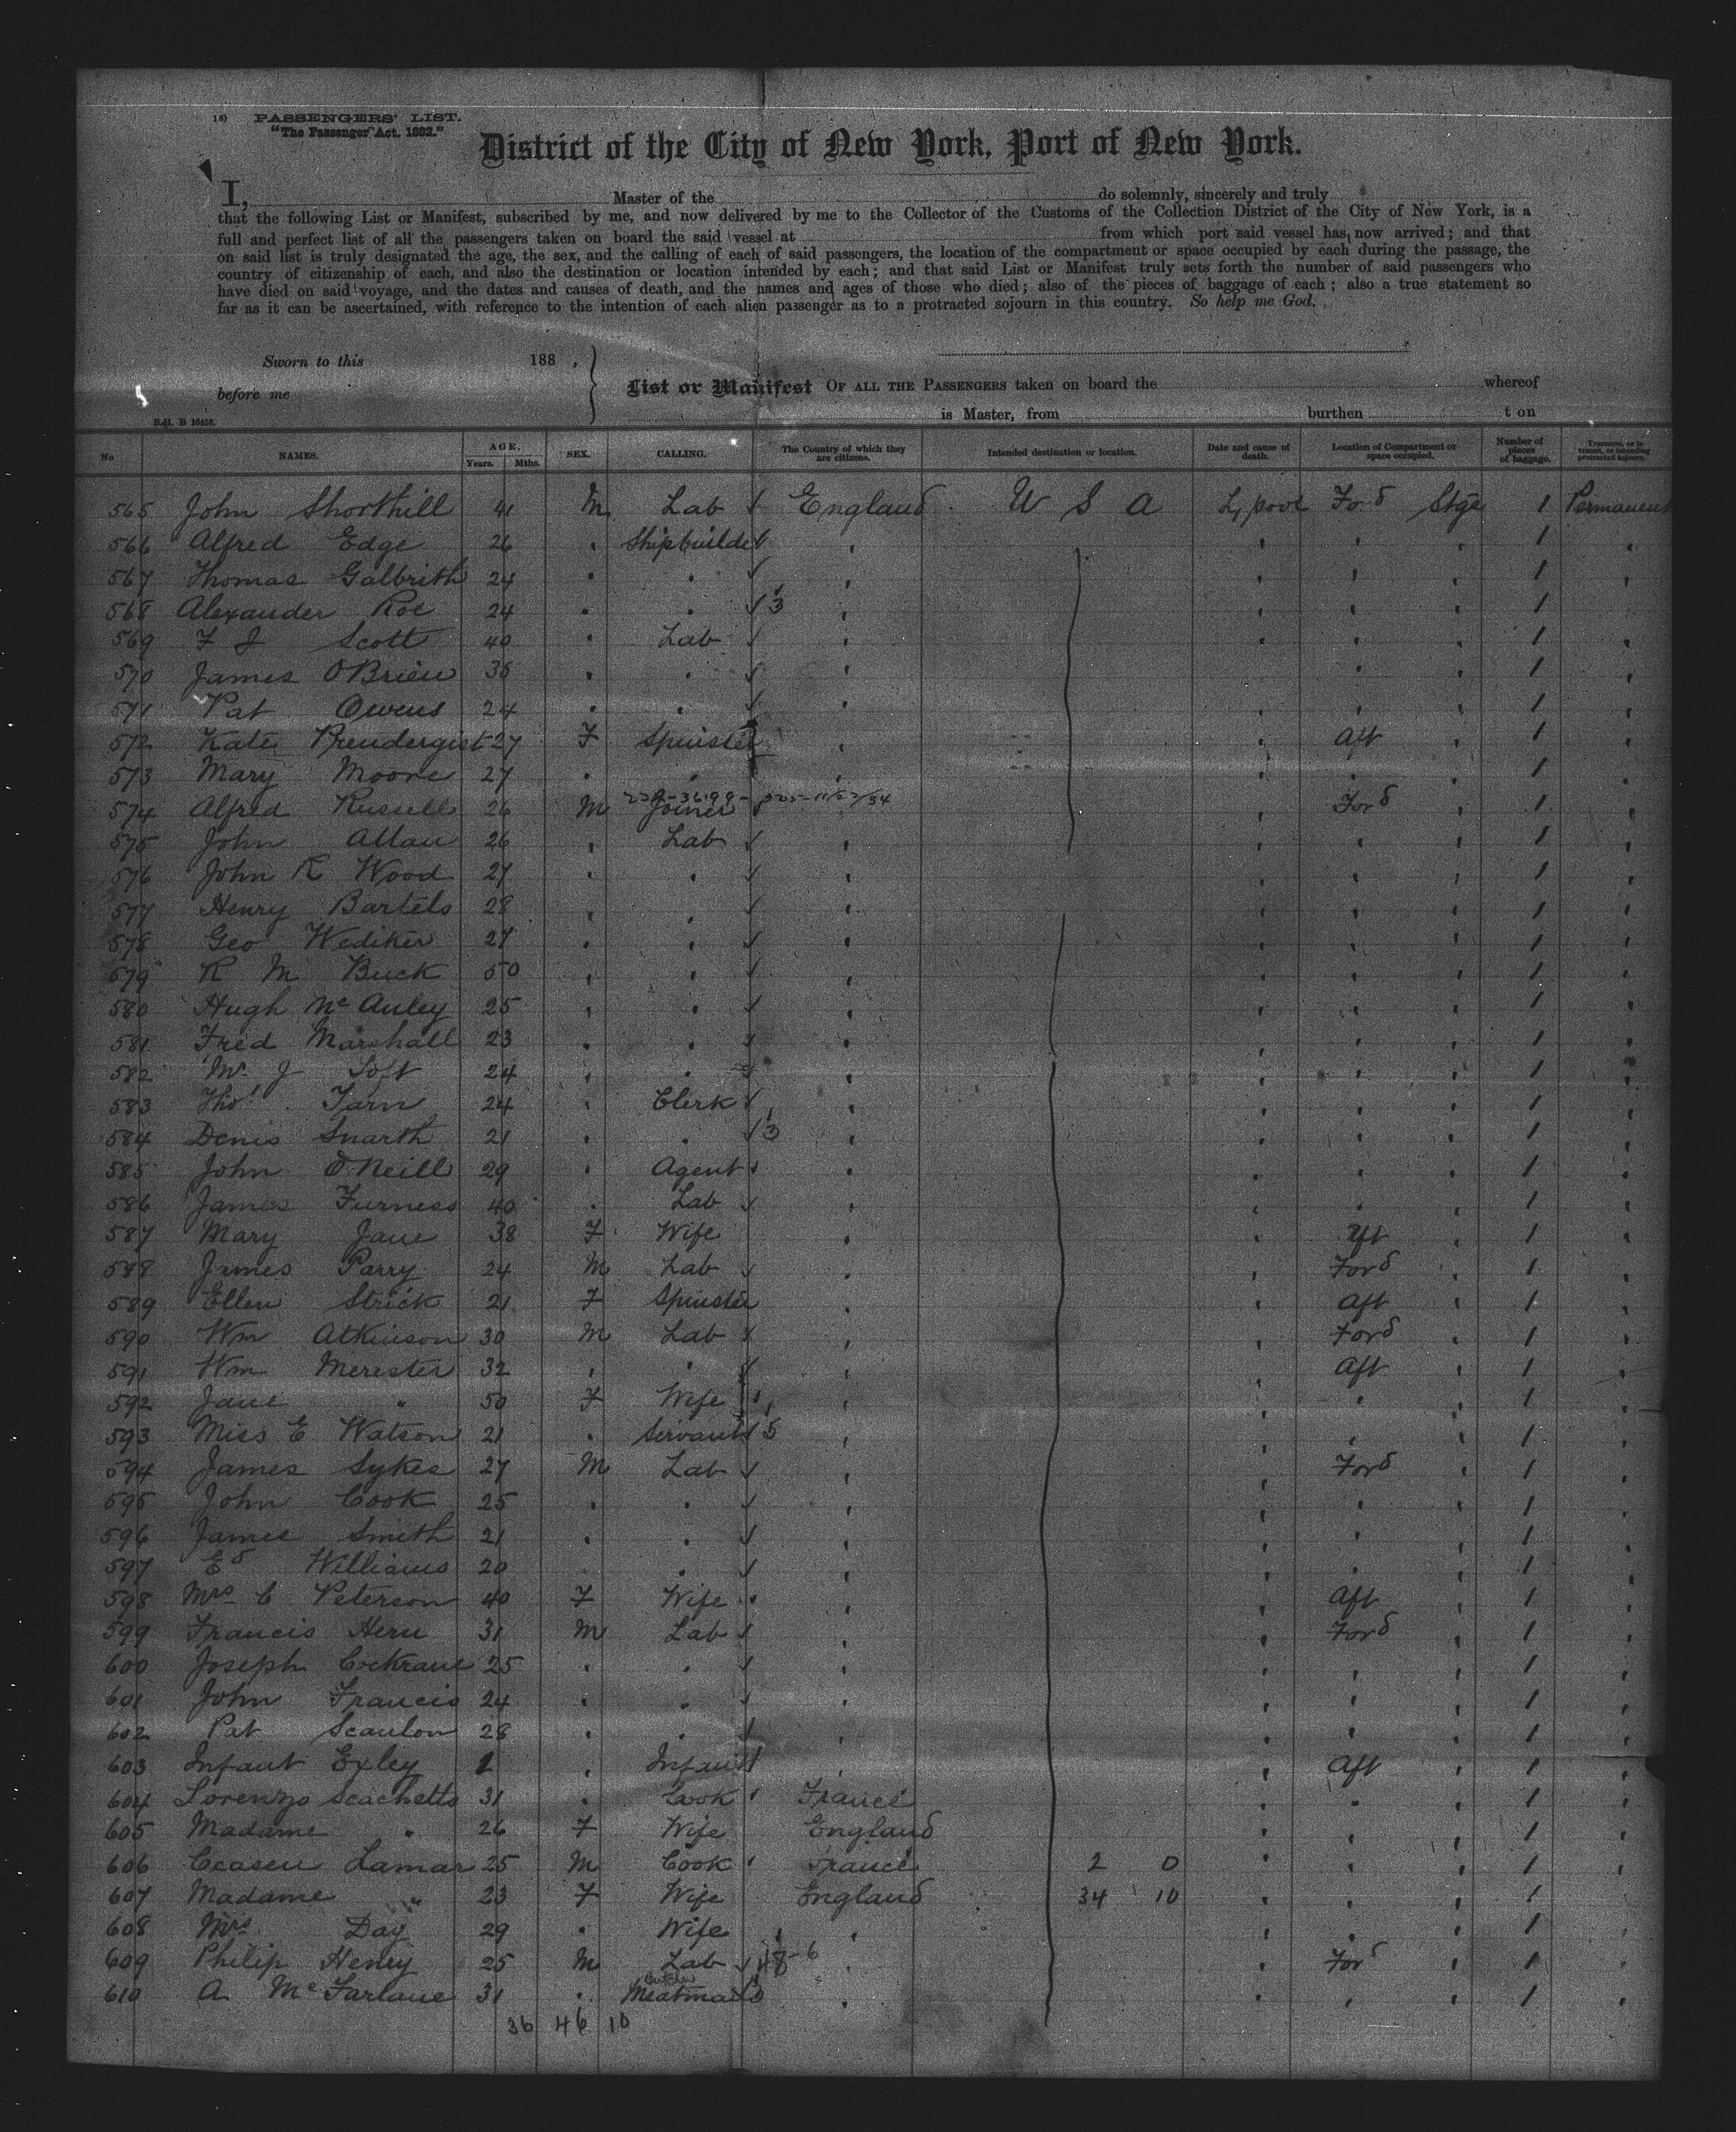 18) PASSENGERS' LIST.
"The Passenger Act. 1882."
District of the City of New York, Port of New York.
I, Master of the do solemnly, sincerely and truly
that the following List or Manifest, subscribed by me, and now delivered by me to the Collector of the Customs of the Collection District of the City of New York, is a
full and perfect list of all the passengers taken on board the said vessel at from which port said vessel has now arrived; and that
on said list is truly designated the age, the sex, and the calling of each of said passengers, the location of the compartment or space occupied by each during the passage, the
country of citizenship of each, and also the destination or location intended by each; and that said List or Manifest truly sets forth the number of said passengers who
have died on said voyage, and the dates and causes of death, and the names and ages of those who died; also of the pieces of baggage of each; also a true statement so
far as it can be ascertained, with reference to the intention of each alien passenger as to a protracted sojourn in this country. So help me God.
Sworn to this 188 .
before me
List or Manifest OF ALL THE PASSENGERS taken on board the whereof
is Master, from burthen t on
B.H. B 16456.
No NAMES. AGE. Years. Mths. SEX. CALLING. The Country of which they are citizens. Intended destination or location. Date and cause of death. Location of Compartment or space occupied. Number of pieces of baggage. Transient, or in transit, or intending protracted sojourn.
565 John Shorthill 41 M Lab England U S A L,pool Ford Stge 1 Permanent
566 Alfred Edge 26 Shipbuilder 1
567 Thomas Galbrith 24 1
568 Alexander Roe 24 3 1
569 F J Scott 40 Lab 1
570 James O'Brien 38 1
571 Pat Owens 24 1
572 Kate Prendergist 27 F Spinster Aft 1
573 Mary Moore 27 1
574 Alfred Russell 26 M Joiner Ford 1
575 John Allan 26 Lab 1
576 John R Wood 27 1
577 Henry Bartels 28 1
578 Geo Wediker 27 1
579 R M Buck 50 1
580 Hugh McAuley 25 1
581 Fred Marshall 23 1
582 Mr J Toft 24 1
583 Thos Tarn 24 Clerk 1
584 Denis Snarth 21 3 1
585 John O'Neill 29 Agent 1
586 James Furness 40 Lab 1
587 Mary Jane 38 F Wife Aft 1
588 James Parry 24 M Lab Ford 1
589 Ellen Strick 21 F Spinster Aft 1
590 Wm Atkinson 30 M Lab Ford 1
591 Wm Merester 32 Aft 1
592 Jane " 50 F Wife 1
593 Miss E Watson 21 Servant 5 1
594 James Sykes 27 M Lab Ford 1
595 John Cook 25 1
596 James Smith 21 1
597 Ed Williams 20 1
598 Mrs C Peterson 40 F Wife Aft 1
599 Francis Hern 31 M Lab Ford 1
600 Joseph Cockrane 25 1
601 John Francis 24 1
602 Pat Scanlon 28 1
603 Infant Exley 1 Infant Aft 1
604 Lorenzo Scachetts 31 Cook France 1
605 Madame " 26 F Wife England 1
606 Lamar 25 M Cook France 2 0 1
607 Madame " 23 F Wife England 34 10 1
608 Mrs Day 29 Wife 1
609 Philip Henry 25 M Lab 48-6 Ford 1
610 A McFarlane 31 Butcher Meatman 1
36 46 10